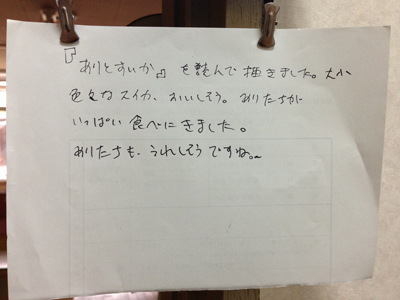 『ありとすいか』を読んで描きました。大小
色々なスイカ、おいしそう。ありたちが
いっぱい食べにきました。
ありたちも、うれしそうですね。